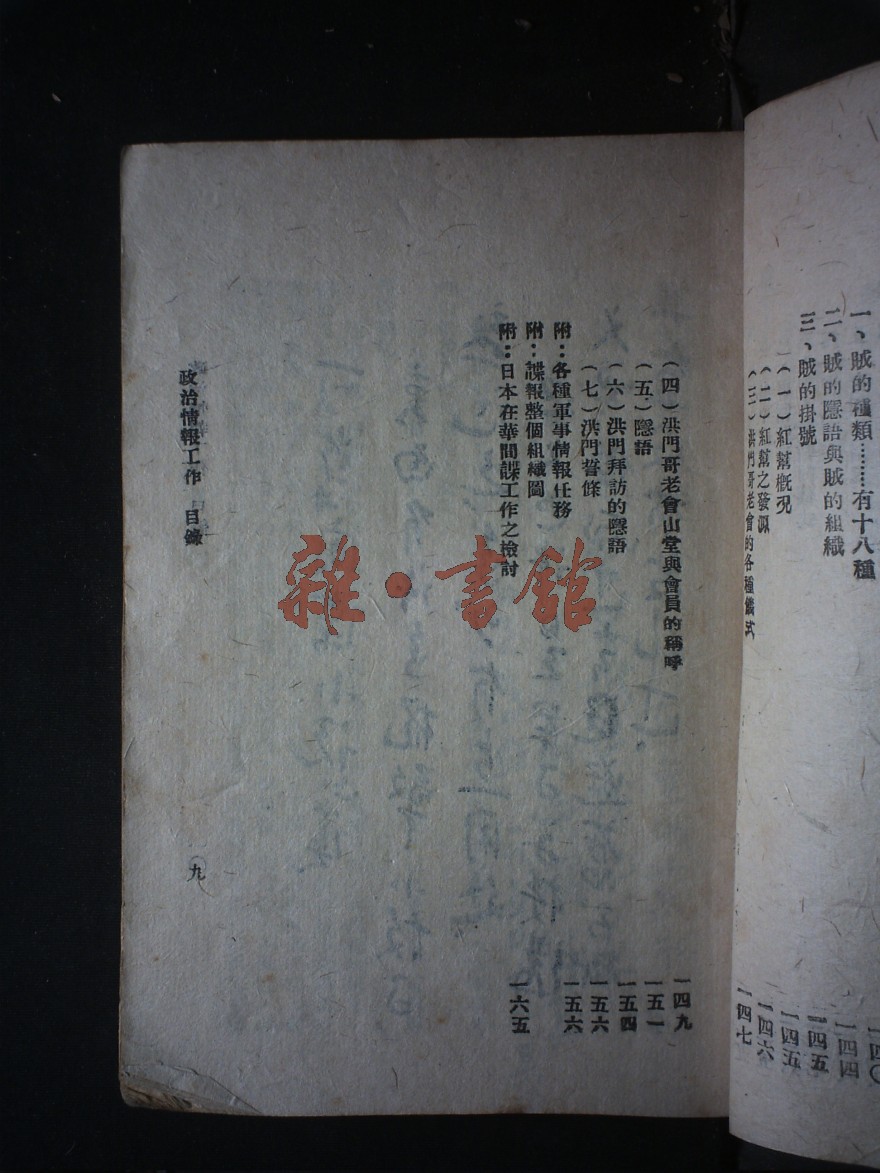 一、賊的種類………有十八種 一四〇
二、賊的隱語與賊的組織 一四四
三、賊的掛號 一四五
(一)紅幫概况 一四五
(二)紅幫之發源 一四六
(三)洪門哥老會的各種儀式 一四七
(四)洪門哥老會山堂與會員的稱呼 一四九
(五)隱語 一五一
(六)洪門拜訪的隱語 一五四
(七)洪門誓條 一五六
附:各種軍事情報任務 一五六
附:諜報整個組織圖
附:日本在華間諜工作之檢討 一六五
政治情報工作 目錄
九
雜·書館